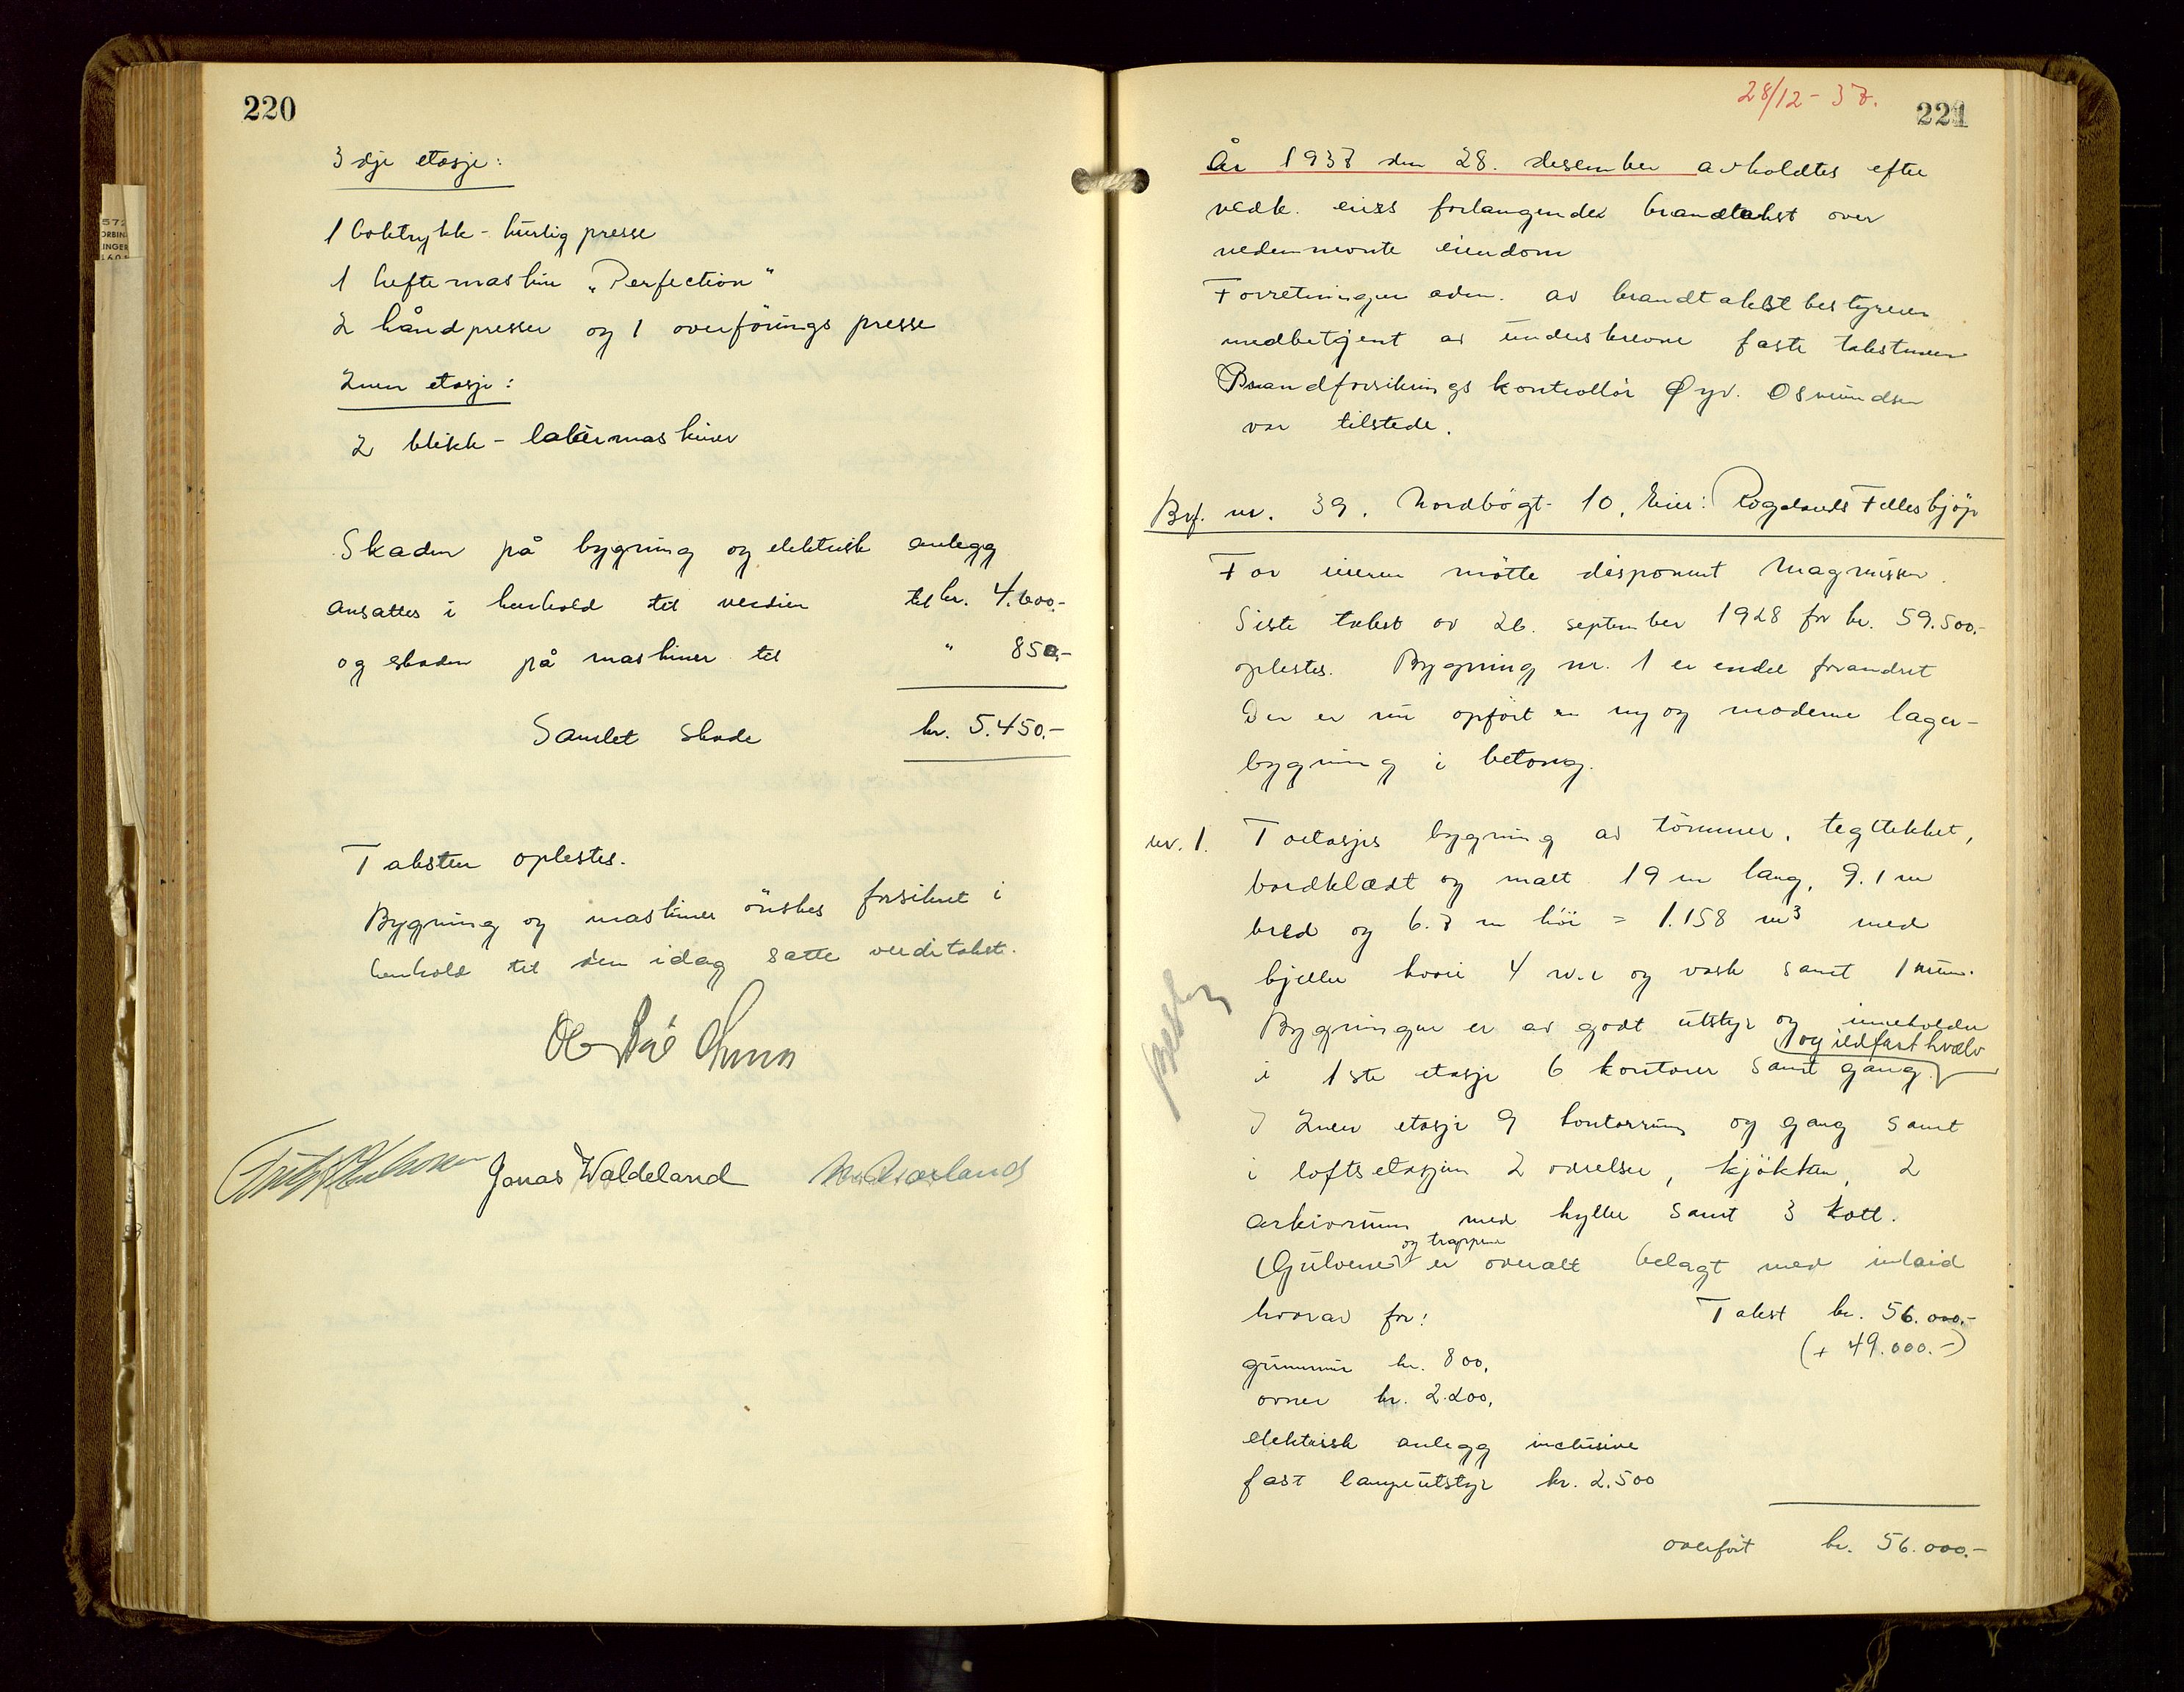 220
3dje etasje:
1 boktrykk-hurtigpresse
1 heftemaskin „Perfection"
2 håndpresser og 1 overførings presse
2nen etasje:
2 blikk-lakérmaskiner
Skaden på bygning og elektrisk anlegg
ansattes i henhold til verdien til kr. 4.600.-
og skaden på maskiner til " 850.-
Samlet skade kr. 5.450.-
Taksten oplestes.
Bygning og maskiner ønskes forsikret i
henhold til den idag satte verditakst.
Jonas Waldeland
572
ORBIN
INGER
1601
28/12-37.
221
År 1937 den 28. desember avholdtes efter
vedk. eiers forlangende brandtakst over
nedennevnte eiendom
Forretningen adm. av brandtakstbestyreren
medbetjent av underskrevne faste takstmenn
Brandforsikringskontrollör Øyv. Osmundsen
var tilstede.
Brf. nr. 39. Nordbögt. 10. Eier: Rogalands Felleskjöp
For eieren mötte disponent Magnussen.
Siste takst av 26. september 1928 for kr. 59.500.-
oplestes. Bygning nr. 1 er endel forandret
Der er nu opfört en ny og moderne lager-
bygning i betong.
nr. 1. Toetasjes bygning av tömmer, tegltekket,
bordklædt og malt 19 m lang, 9.1 m
bred og 6.7 m höi = 1.158 m³ med
kjeller hvori 4 w.c og vask samt 1 rum.
Bygningen er av godt utstyr og inneholder
i 1ste etasje 6 kontorer samt gang og ildfast hvelv
I 2nen etasje 9 kontorrum og gang samt
i loftsetasjen 2 værelser, kjökken, 2
arkivrum med hyller samt 3 kott.
Gulvene og trappene er overalt belagt med inlaid
hvorav for: Takst kr. 56.000.-
grunnmur kr. 800, (+ 49.000.-)
ovner kr. 2.200,
elektrisk anlegg inclusive
fast lampeutstyr kr. 2.500
overfört kr. 56.000.-